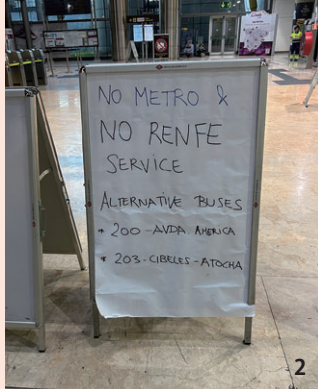 NO METRO &
NO RENFE
SERVICE
ALTERNATIVE BUSES
* 200 - AVDA. AMERICA
* 203 - CIBELES - ATOCHA
2